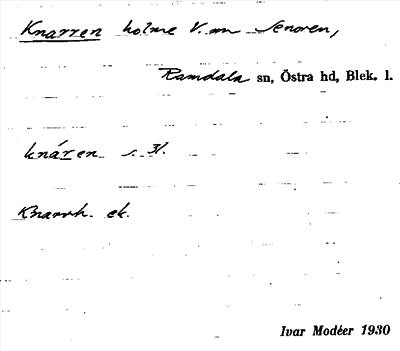 Knarren holme V. om Senoren,
Ramdala sn, Östra hd, Blek. l.
knáren s. 31.
Knarrh. ek.
Ivar Modéer 1930